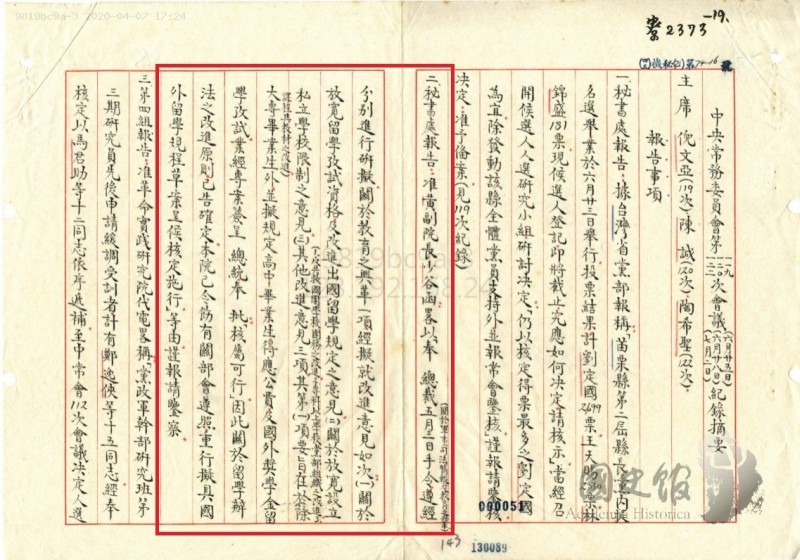 9819bc9a-3 2020-04-07 17:24
-19.
2373
中央常務委員會第一一九、一二〇、一二二次會議(六月廿五日)(六月廿八日)(七月二日)紀錄摘要
主席 倪文亞(119次)陳 誠(120次)陶希聖(122次)
報告事項
一、秘書處報告:據台灣省黨部報稱「苗栗縣第二屆縣長黨內提
名選舉業於六月廿三日舉行投票結果計劉定國2699票王天賜
錦盛131票現候選人登記即將截止究應如何決定請核示」當經召
開候選人人選研究小組研討決定、仍以核定得票最多之劉定國
為宜除發動該縣全體黨員支持外並報常會鑒核」謹報請鑒核
決定:准予備案(見119次紀錄)
二、秘書處報告:准黃副院長少谷函畧以奉 總裁五月三日手令遵經
分別進行研擬關於教育之興革一項經擬就改進意見如次(一)關於
放寬留學攷試資格及改進出國留學規定之意見(二)關於放寬設立
私立學校限制之意見(三)其他改進意見三項其第(一)項要旨在於除
大專畢業生外並擬規定高中畢業生得應公費及國外獎學金留
學攷試業經專案簽呈 總統奉 批核屬可行」因此關於留學辦
法之改進原則已告確定本院已令飭有關部會遵照重行擬具國
外留學規程草案呈侯核定施行」等由謹報請鑒察
三、第四組報告:准革命實踐研究院代電畧稱「黨政軍幹部研究班第
三期研究員先後申請緩調受訓者計有鄭逸俠等十五同志經奉
核定以馬君助等十二同志依序遞補至中常會112次會議決定人選
000051
143
130089
國史館
Academia Historica